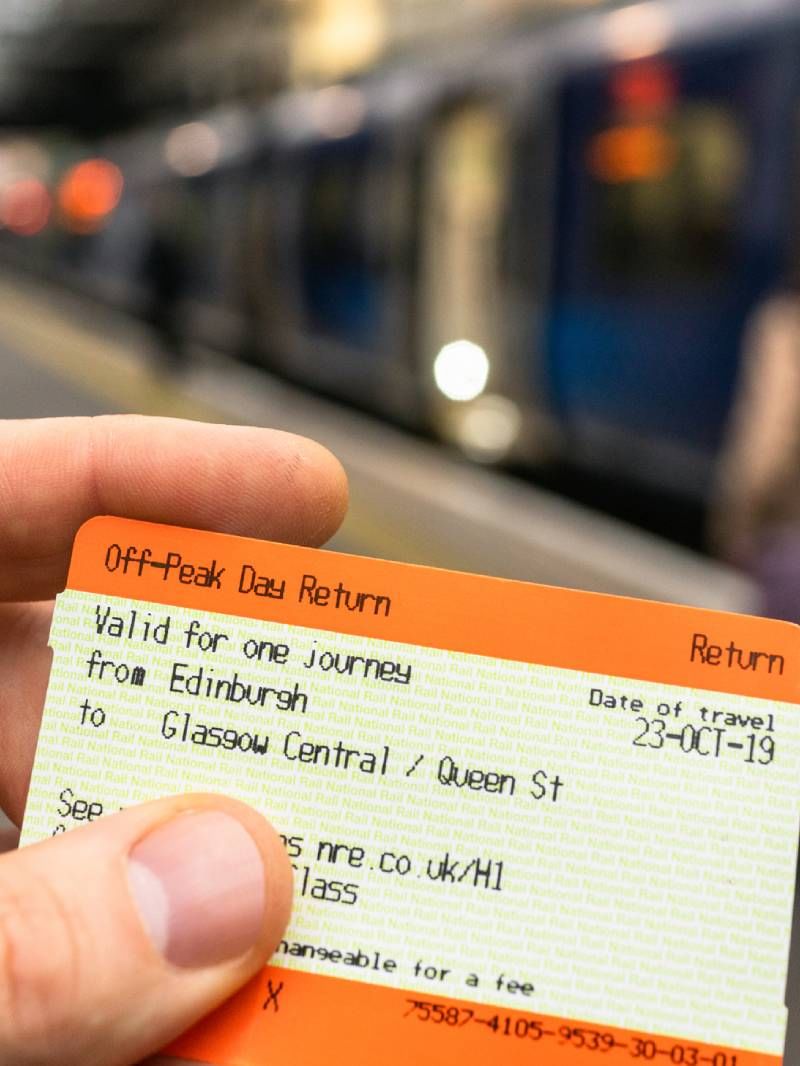 Off-Peak Day Return
Return
Valid for one journey
from Edinburgh
to Glasgow Central / Queen St
Date of travel
23-OCT-19
See
nre.co.uk/H1
for a fee
X
75587-4105-9539-30-03-01